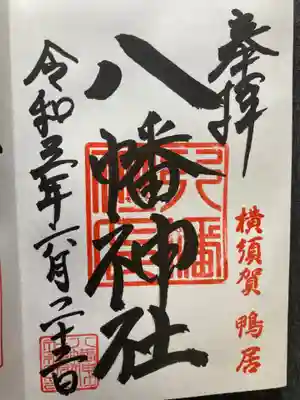 奉拝
横須賀 鴨居
八幡神社
令和三年六月二十三日